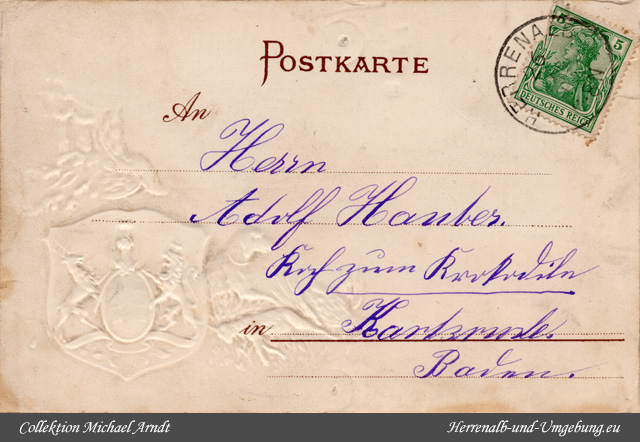 POSTKARTE
5
DEUTSCHES REICH
HERRENALB
An
Herrn
Adolf Hauber.
Koch zum Krokodile
in Karlsruhe.
Baden.
Collektion Michael Arndt
Herrenalb-und-Umgebung.eu